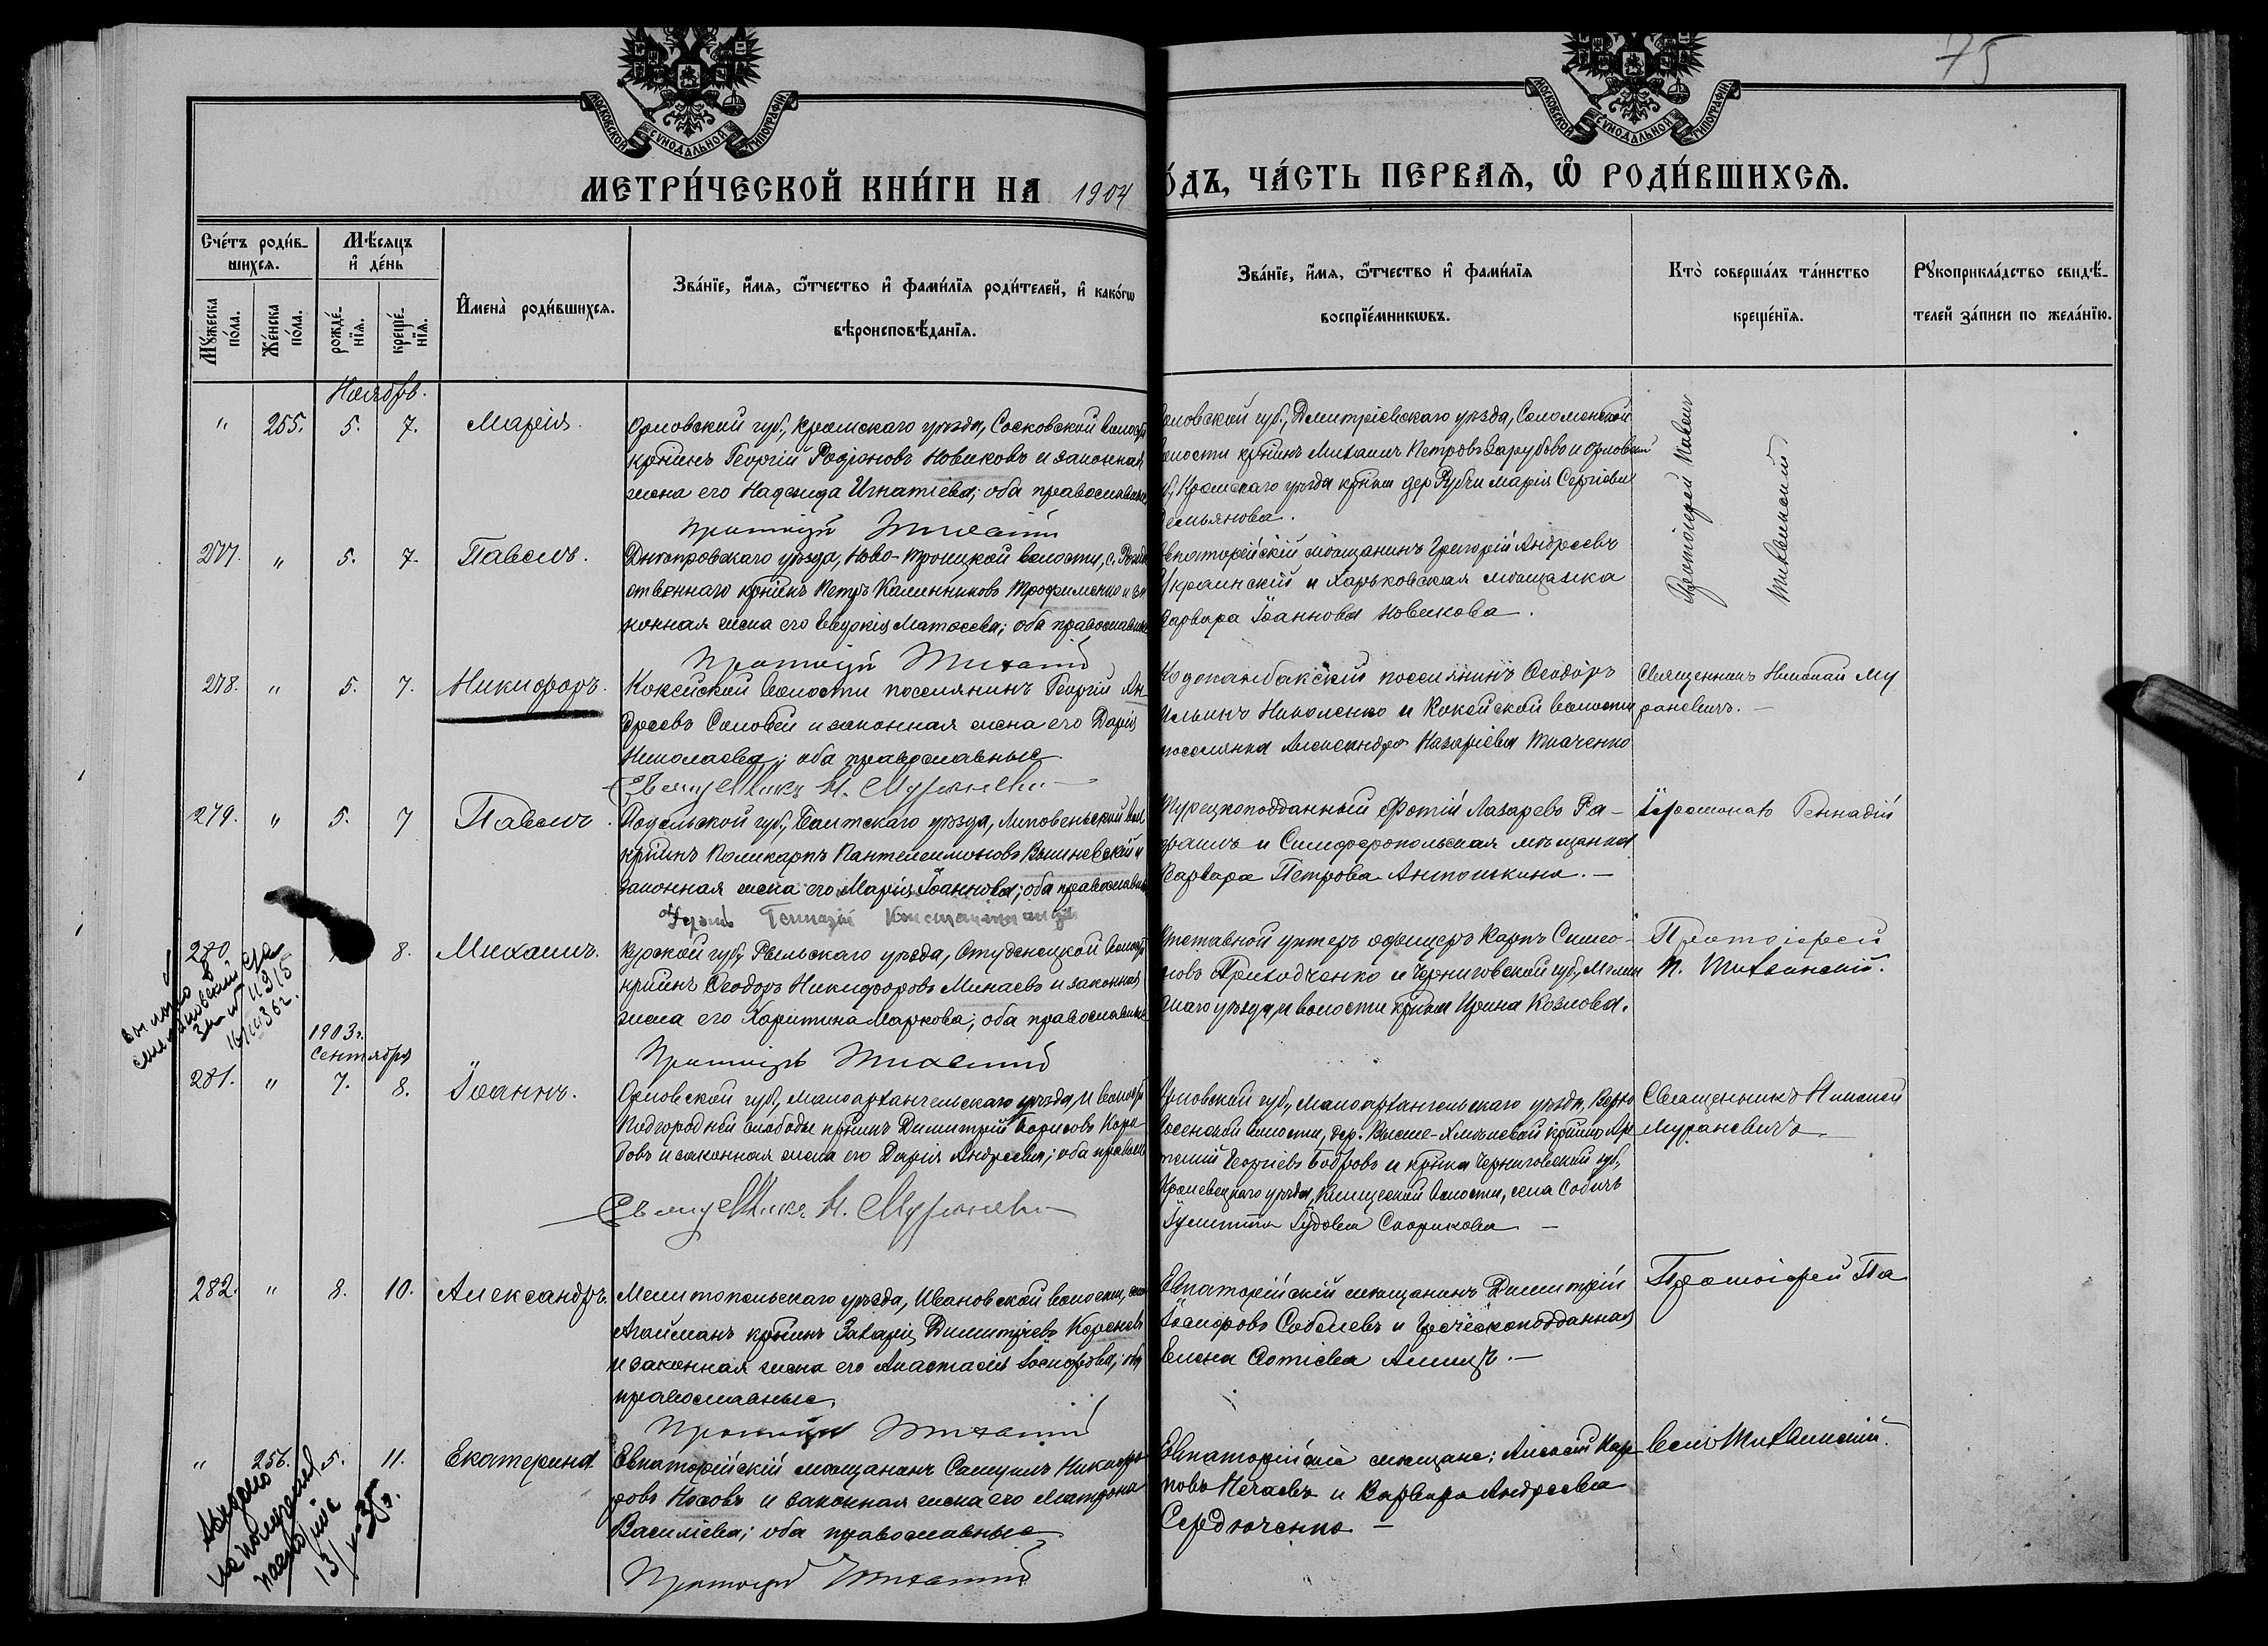 75
МОСКОВСКОЙ СУНОДАЛЬНОЙ ТИПОГРАФІИ
МОСКОВСКОЙ СУНОДАЛЬНОЙ ТИПОГРАФІИ
МЕТРИ́ЧЕСКОЙ КНИ́ГИ НА 1904
О́ДЪ, ЧА́СТЬ ПЕРВАЯ, Ѡ РОДИ́ВШИХСЯ.
Сче́тъ роди́в-
шихся.
Му́жеска по́ла.
Же́нска по́ла.
Мѣ́сяцъ и де́нь
рожде́-нїя.
креще́-нїя.
Имена̀ роди́вшихся.
Зва́нїе, и́мя, ѻ҆́тчество и фами́лїя роди́телей, и како́гѡ
вѣроисповѣ́данїя.
Зва́нїе, и́мя, ѻ҆́тчество и фами́лїя
воспрїе́мникѡвъ.
Кто̀ соверша́лъ та́инство
креще́нїя.
Рꙋкоприкла́дство свидѣ́-
телей за́писи по жела́нїю.
Ноябрь.
" 255. 5. 7. Марія.
Орловской губ., Кромскаго уѣзда, Сосковской волости
крнинъ Георгій Родіоновъ Новиковъ и законная
жена его Надежда Игнатіева; оба православные
Протоіерей Тихвинскій
орловской губ., Дмитріевскаго уѣзда, Соломенской
волости крнинъ Михаилъ Петровъ Зарубово и Орловской
губ., Кромскаго уѣзда крнка дер. Рубчи Марія Сергіева
Демьянова.
Протоіерей Павелъ
Тихвинскій
277. " 5. 7. Павелъ.
Днѣпровскаго уѣзда, Ново-Троицкой волости, с. Рожде
ственнаго крнинъ Петръ Калинниковъ Трофименко и за
конная жена его Евдокія Матѳеева; оба православные
Протоіерей Тихвинскій
Евпаторійскій мѣщанинъ Григорій Андреевъ
Украинскій и Харьковская мѣщанка
Варвара Іоаннова Новикова.
278. " 5. 7. Никифоръ.
Кокейской волости поселянинъ Георгій Ан
дреевъ Соловей и законная жена его Дарія
Николаева; оба православные
Священникъ Н. Мураневичъ
поселянинъ Ѳеодоръ
Ильинъ Николенко и Кокейской волости
поселянка Александра Назаріева Ткаченко
Священникъ Николай Му
раневичъ.
279. " 5. 7 Павелъ.
Подольской губ., Балтскаго уѣзда, Липовеньской вол
крнинъ Поликарпъ Пантелеимоновъ Вишневскій и
законная жена его Марія Іоаннова; оба православные
Іером. Геннадій
Турецкоподданный Фотій Лазаревъ Ра-
и Симферопольская мѣщанка
Варвара Петрова Антошкина. —
Іеромонахъ Геннадій
280 8. Михаилъ.
Курской губ., Рыльскаго уѣзда, Студенецкой волости
крнинъ Ѳеодоръ Никифоровъ Минаевъ и законная
жена его Харитина Маркова; оба православные
Протоіерей Тихвинскій
Отставной унтеръ офицеръ Карпъ Симео-
новъ Приходченко и Черниговской губ., Мглин
скаго уѣзда, и волости крнка Ирина Козлова.
Протоіерей
П. Тихвинскій.
1903 г.
Сентября
281. " 7. 8. Іоаннъ.
Орловской губ., Малоархангельскаго уѣзда, и волости
Подгородней слободы крнинъ Димитрій Борисовъ
и законная жена его Дарія Андреева; оба православн
Священникъ Н. Мураневичъ
Орловской губ., Малоархангельскаго уѣзда, Верхо
сосенской волости, дер. крнинъ Ар
темій Георгіевъ Бобровъ и крнка Черниговской губ.,
Кролевецкаго уѣзда, волости, села Собичъ
Іулитта Скорикова —
Священникъ Николай
Мураневичъ.
282. " 8. 10. Александръ.
Мелитопольскаго уѣзда, Ивановской волости, села
Агайманъ крнинъ Захарія Димитріевъ Кореневъ
и законная жена его Анастасія Іосифова; оба
православные.
Протоіерей Тихвинскій
Евпаторійскій мѣщанинъ Димитрій
Іосифовъ Соболевъ и Греческоподданная
Елена Фотіева
Протоіерей Па
" 256. 5. 11. Екатерина.
Евпаторійскій мѣщанинъ Самуилъ Никифо
ровъ Носовъ и законная жена его Матрона
Василіева; оба православные
Протоіерей Тихвинскій
Евпаторійскіе мѣщане: Алексій Кар
повъ Нечаевъ и Варвара Андреева
Сердюченко —
велъ Тихвинскій.